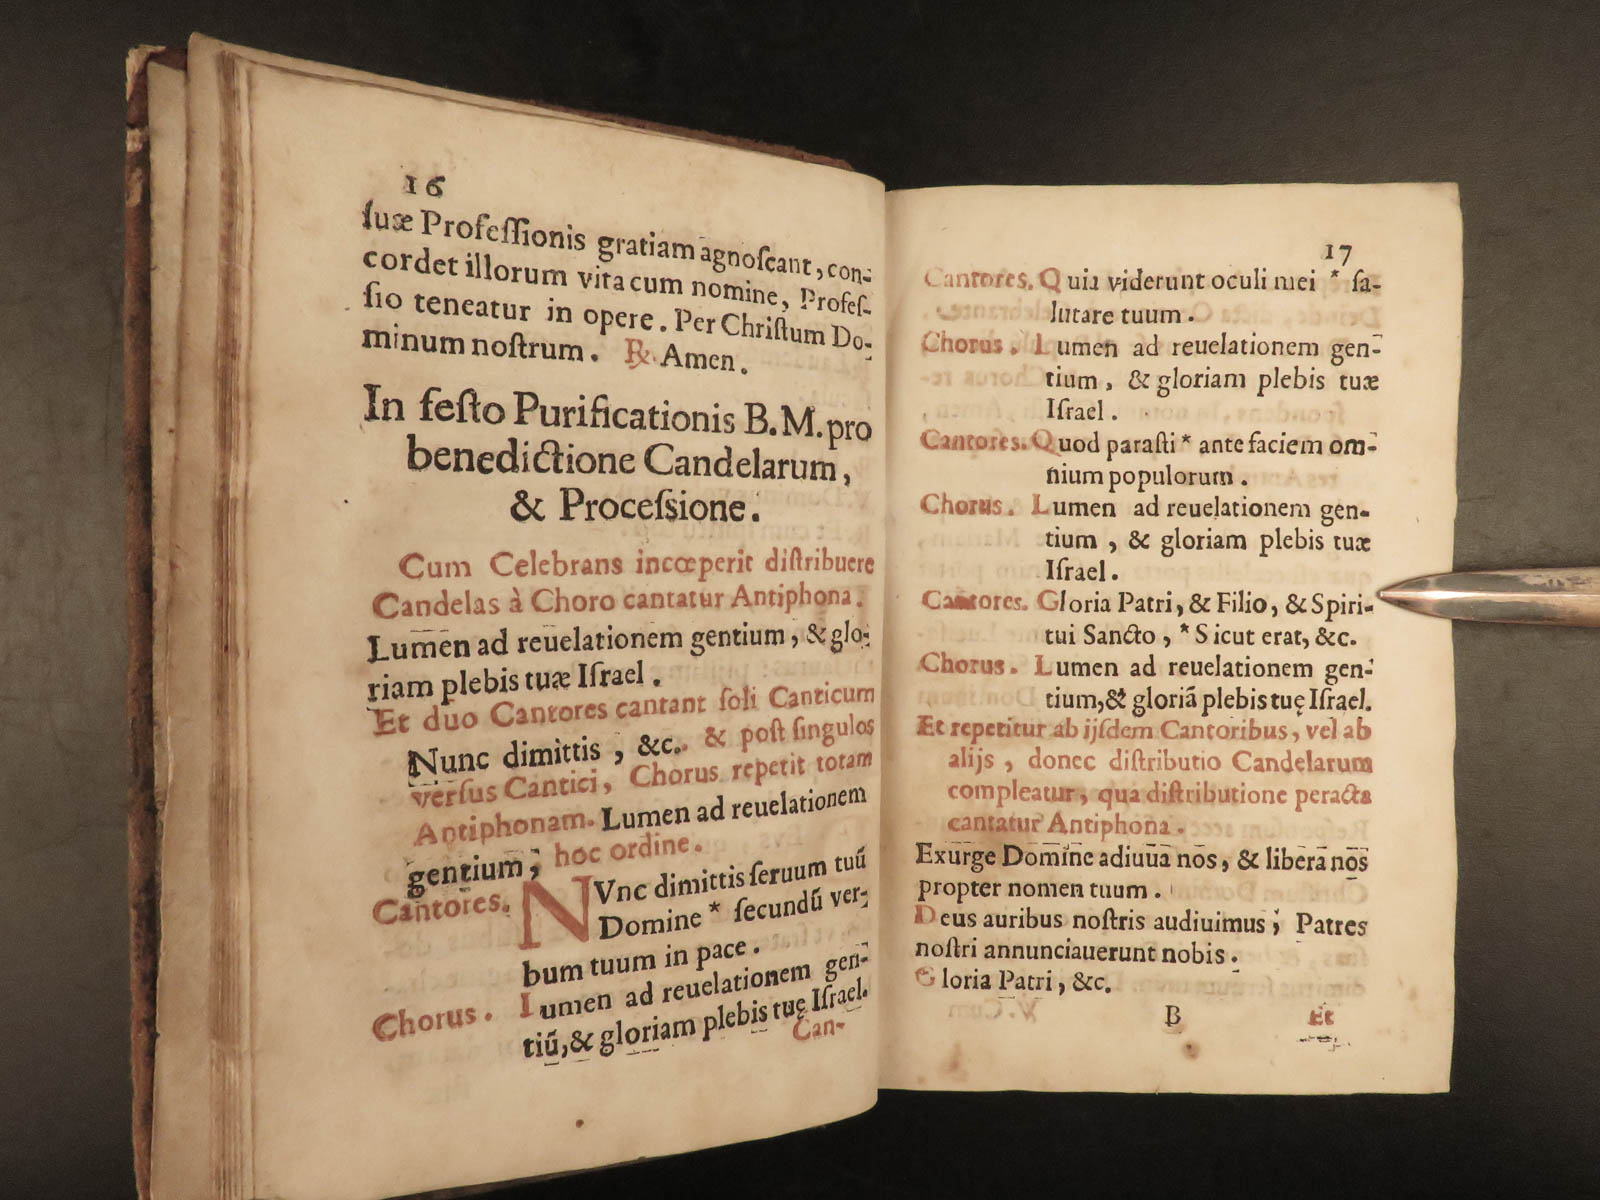 16
ſuæ Profeſſionis gratiam agnoſcant, con-
cordet illorum vita cum nomine, Profeſ-
ſio teneatur in opere. Per Chriſtum Do-
minum noſtrum. ℟. Amen.
In feſto Purificationis B. M. pro
benedictione Candelarum,
& Proceſsione.
Cum Celebrans incœperit diſtribuere
Candelas à Choro cantatur Antiphona.
Lumen ad reuelationem gentium, & glo-
riam plebis tuæ Iſrael.
Et duo Cantores cantant ſoli Canticum
Nunc dimittis, &c. & poſt ſingulos
verſus Cantici, Chorus repetit totam
Antiphonam. Lumen ad reuelationem
gentium, hoc ordine.
Cantores. NVnc dimittis ſeruum tuū
Domine * ſecundū ver-
bum tuum in pace.
Chorus. Lumen ad reuelationem gen-
tiū, & gloriam plebis tuę Iſrael.
Can-
17
Cantores. Quia viderunt oculi mei * ſa-
lutare tuum.
Chorus. Lumen ad reuelationem gen-
tium, & gloriam plebis tuæ
Iſrael.
Cantores. Quod paraſti * ante faciem om-
nium populorum.
Chorus. Lumen ad reuelationem gen-
tium, & gloriam plebis tuæ
Iſrael.
Cantores. Gloria Patri, & Filio, & Spiri-
tui Sancto, * Sicut erat, &c.
Chorus. Lumen ad reuelationem gen-
tium, & gloriā plebis tuę Iſrael.
Et repetitur ab ijſdem Cantoribus, vel ab
alijs, donec diſtributio Candelarum
compleatur, qua diſtributione peracta
cantatur Antiphona.
Exurge Domine adiuua nos, & libera nos
propter nomen tuum.
Deus auribus noſtris audiuimus; Patres
noſtri annunciauerunt nobis.
Gloria Patri, &c.
B Et